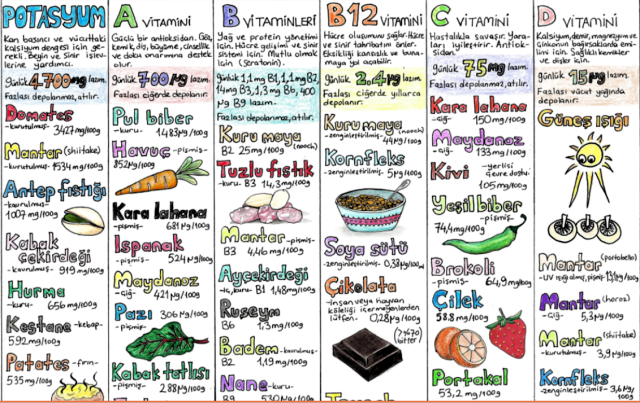 POTASYUM
Kan basıncı ve vücuttaki
kalsiyum dengesi için ge-
rekli. Beyin ve Sinir işlev-
lerine yardımcı.
günlük 4.700mg lazım.
Fazlası depolanmaz, atılır.
Domates
-kurutulmuş- 3427 mg/100g
Mantar (shiitake)
-kurutulmuş- 1534mg/100g
Antep fıstığı
-kavrulmuş-
1007 mg/100g
Kabak
çekirdeği
-kavrulmuş- 919 mg/100g
Hurma
-kuru- 656 mg/100g
Kestane -kebap-
592mg/100g
Patates -fırın-
535mg/100g
A VİTAMİNİ
Güçlü bir antioksidan. Göz,
kemik, diş, büyüme, cinsellik
ve doku onarımına destek
olur.
günlük 700µg lazım.
Fazlası ciğerde depolanır.
Pul biber
-kuru- 1483µg/100g
Havuç -pişmiş-
852µg/100g
Kara lahana
-pişmiş- 681µg/100g
Ispanak
-pişmiş- 524µg/100g
Maydanoz
-çiğ- 421µg/100g
Pazı 306 µg/100g
-pişmiş-
Kabak tatlısı
-pişmiş- 288µg/100g
B VİTAMİNLERİ
Yağ ve protein yönetimi
için. Hücre gelişimi ve sinir
sistemi için. Mutlu olmak
için (Seratonin).
günlük 1,1mg B1, 1,1mg B2,
14mg B3, 1,3mg B6, 400
µg B9 lazım.
Fazlası depolanmaz, atılır.
Kuru maya
B2 25mg/100g (nooch)
Tuzlu fıstık
-kuru- B3 14,3mg/100g
Mantar -pişmiş-
B3 4,46 mg/100g
Ayçekirdeği
-iç, kuru- B1 1,48mg/100g
Ruşeym
B6 1,3mg/100g
Badem -kavrulmuş-
B2 1,19mg/100g
Nane -kuru-
B9 530µg/100g
B12 VİTAMİNİ
Hücre oluşumunu sağlar. Hücre
ve sinir tahribatını önler.
Eksikliği kansızlık ve buna-
maya yol açabilir.
günlük 2.4µg lazım.
Fazlası ciğerde yıllarca
depolanır.
Kuru maya (nooch)
-zenginleştirilmiş- 44µg/100g
Kornfleks
-zenginleştirilmiş- 5µg/100g
Soya sütü
-zenginleştirilmiş- 0,38µg/100g
Çikolata
-insan veya hayvan
köleliği içermeyenlerden
lütfen- 0,28µg/100g
(>%70
bitter)
C VİTAMİNİ
Hastalıkla savaşır. Yara-
ları iyileştirir. Antiok-
sidan.
günlük 75mg lazım.
Fazlası depolanmaz, atılır.
Kara lahana
-çiğ- 150mg/100g
Maydanoz
-çiğ- 133mg/100g
Kivi -yerlisi
çevre dostu-
105mg/100g
Yeşil biber
-pişmiş-
74,4mg/100g
Brokoli
-pişmiş- 64,9mg/100g
Çilek
58.8 mg/100g
Portakal
53,2 mg/100g
D VİTAMİNİ
Kalsiyum, demir, magnezyum ve
çinkonun bağırsaklarda emi-
limi için. Sağlıklı kemikler
ve dişler için.
günlük 15µg lazım.
Fazlası vücut yağında
depolanır.
Güneş ışığı
Mantar (portobello)
-UV ışığı almış, pişmiş- 13,1µg/100g
Mantar (horoz)
-çiğ- 5,3µg/100g
Mantar (shiitake)
-kurutulmuş- 3,9µg/100g
Kornfleks
-zenginleştirilmiş- 3,6µg/
100g